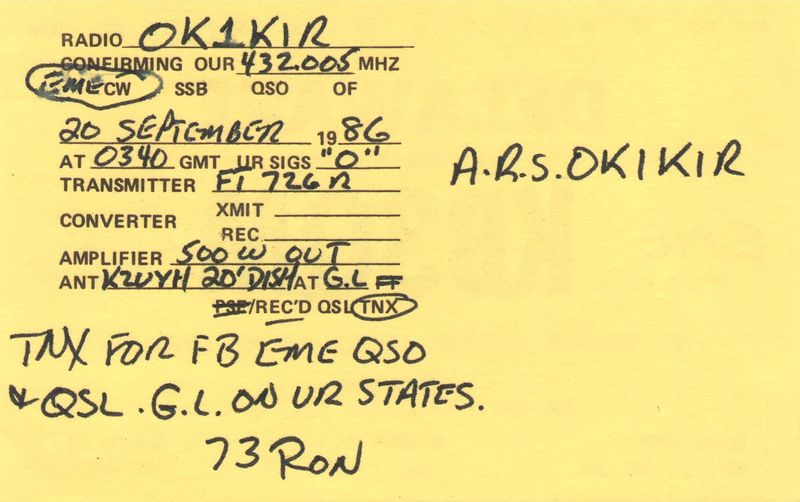 RADIO OK1KIR
CONFIRMING OUR 432.005 MHZ
EME CW SSB QSO OF
20 SEPTEMBER 1986
AT 0340 GMT UR SIGS "O"
TRANSMITTER FT 726R
CONVERTER XMIT
REC
AMPLIFIER 500W OUT
ANT K2UYH 20' DISH AT G.L FF
PSE/REC'D QSL TNX
A.R.S. OK1KIR
TNX FOR FB EME QSO
& QSL. G.L. ON UR STATES.
73 RON